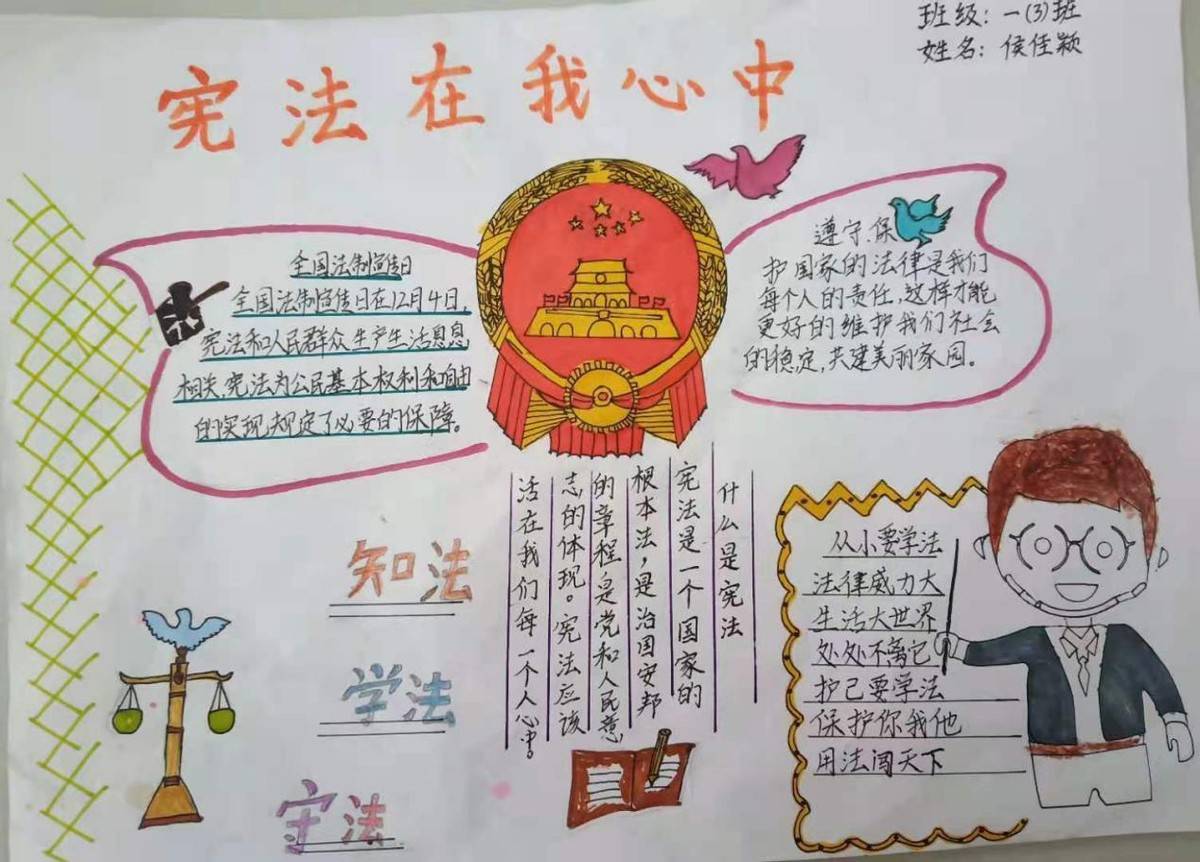 班级：一(3)班
姓名：侯佳颖
宪法在我心中
全国法制宣传日
全国法制宣传日在12月4日，
宪法和人民群众生产生活息息
相关，宪法为公民基本权利和自由
的实现规定了必要的保障。
遵守、保
护国家的法律是我们
每个人的责任，这样才能
更好的维护我们社会
的稳定，共建美丽家园。
什么是宪法
宪法是一个国家的
根本法，是治国安邦
的章程是党和人民意
志的体现。宪法应该
活在我们每一个人心中。
知法
学法
守法
从小要学法
法律威力大
生活大世界
处处不离它
护己要学法
保护你我他
用法闯天下